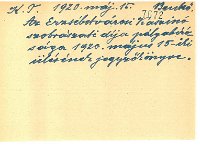 K. T. 1920. máj. 15. Benkó.
7072
Az Erzsébetvárosi Kaszinó
szobrászati díja pályabíró
sága 1920. május 15-iki
ülésének jegyzőkönyve.